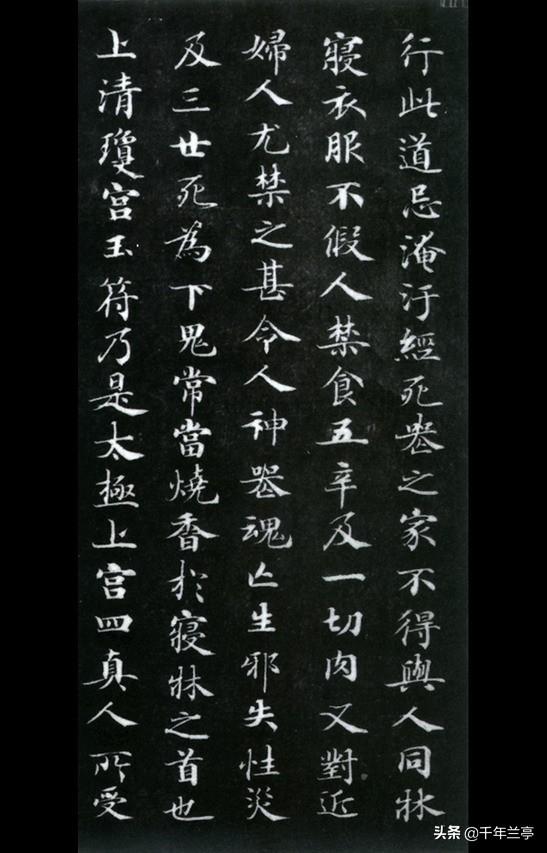 行此道忌淹汙經死喪之家不得與人同牀
寢衣服不假人禁食五辛及一切肉又對近
婦人尤禁之甚令人神喪魂亡生邪失性災
及三世死為下鬼常當燒香於寢牀之首也
上清瓊宮玉符乃是太極上宮四真人所受
头条 @千年兰亭